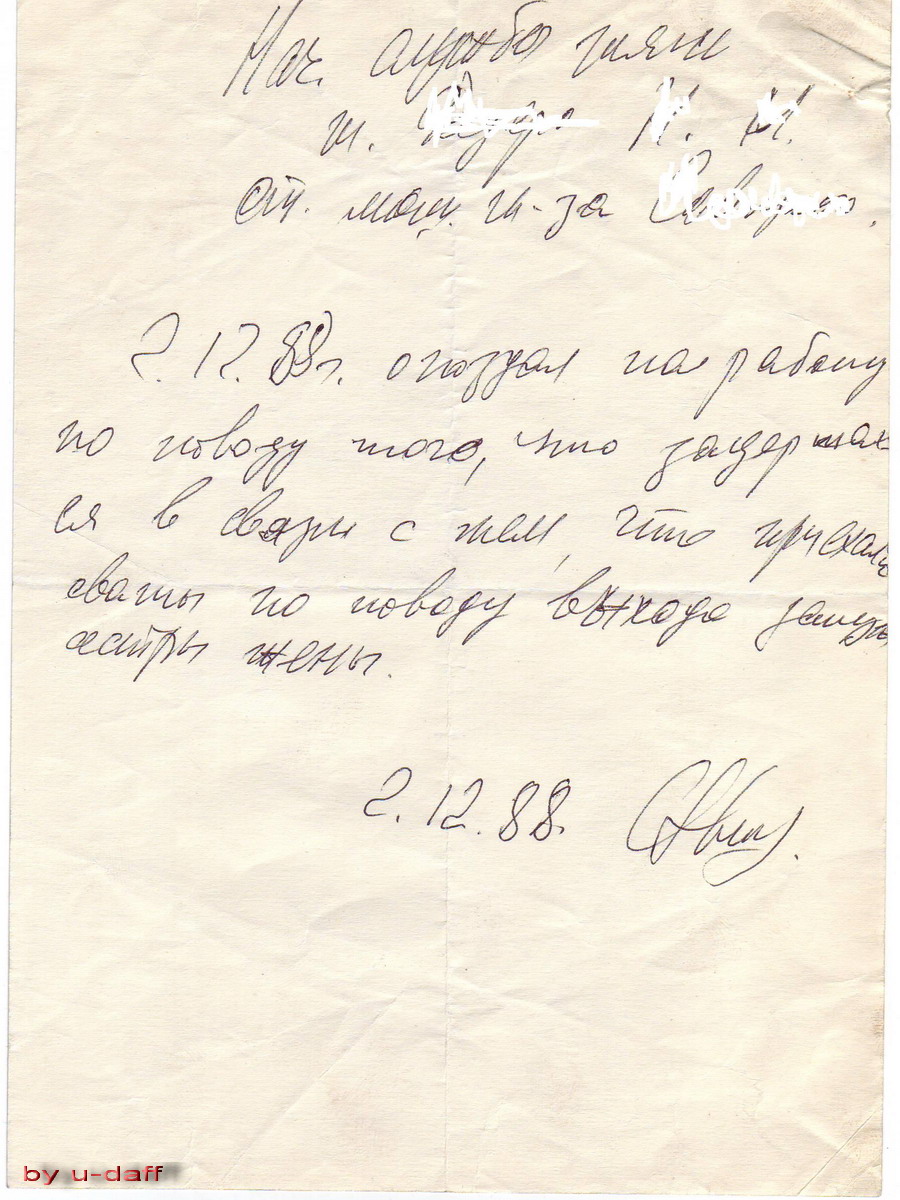 Нач. службы тяги
т.
от. маш. т-за
2.12.88г. опоздал на работу
по поводу того, что задержал
ся в связи с тем, что приехали
сваты по поводу выхода замуж
сестры жены.
2.12.88.
by u-daff